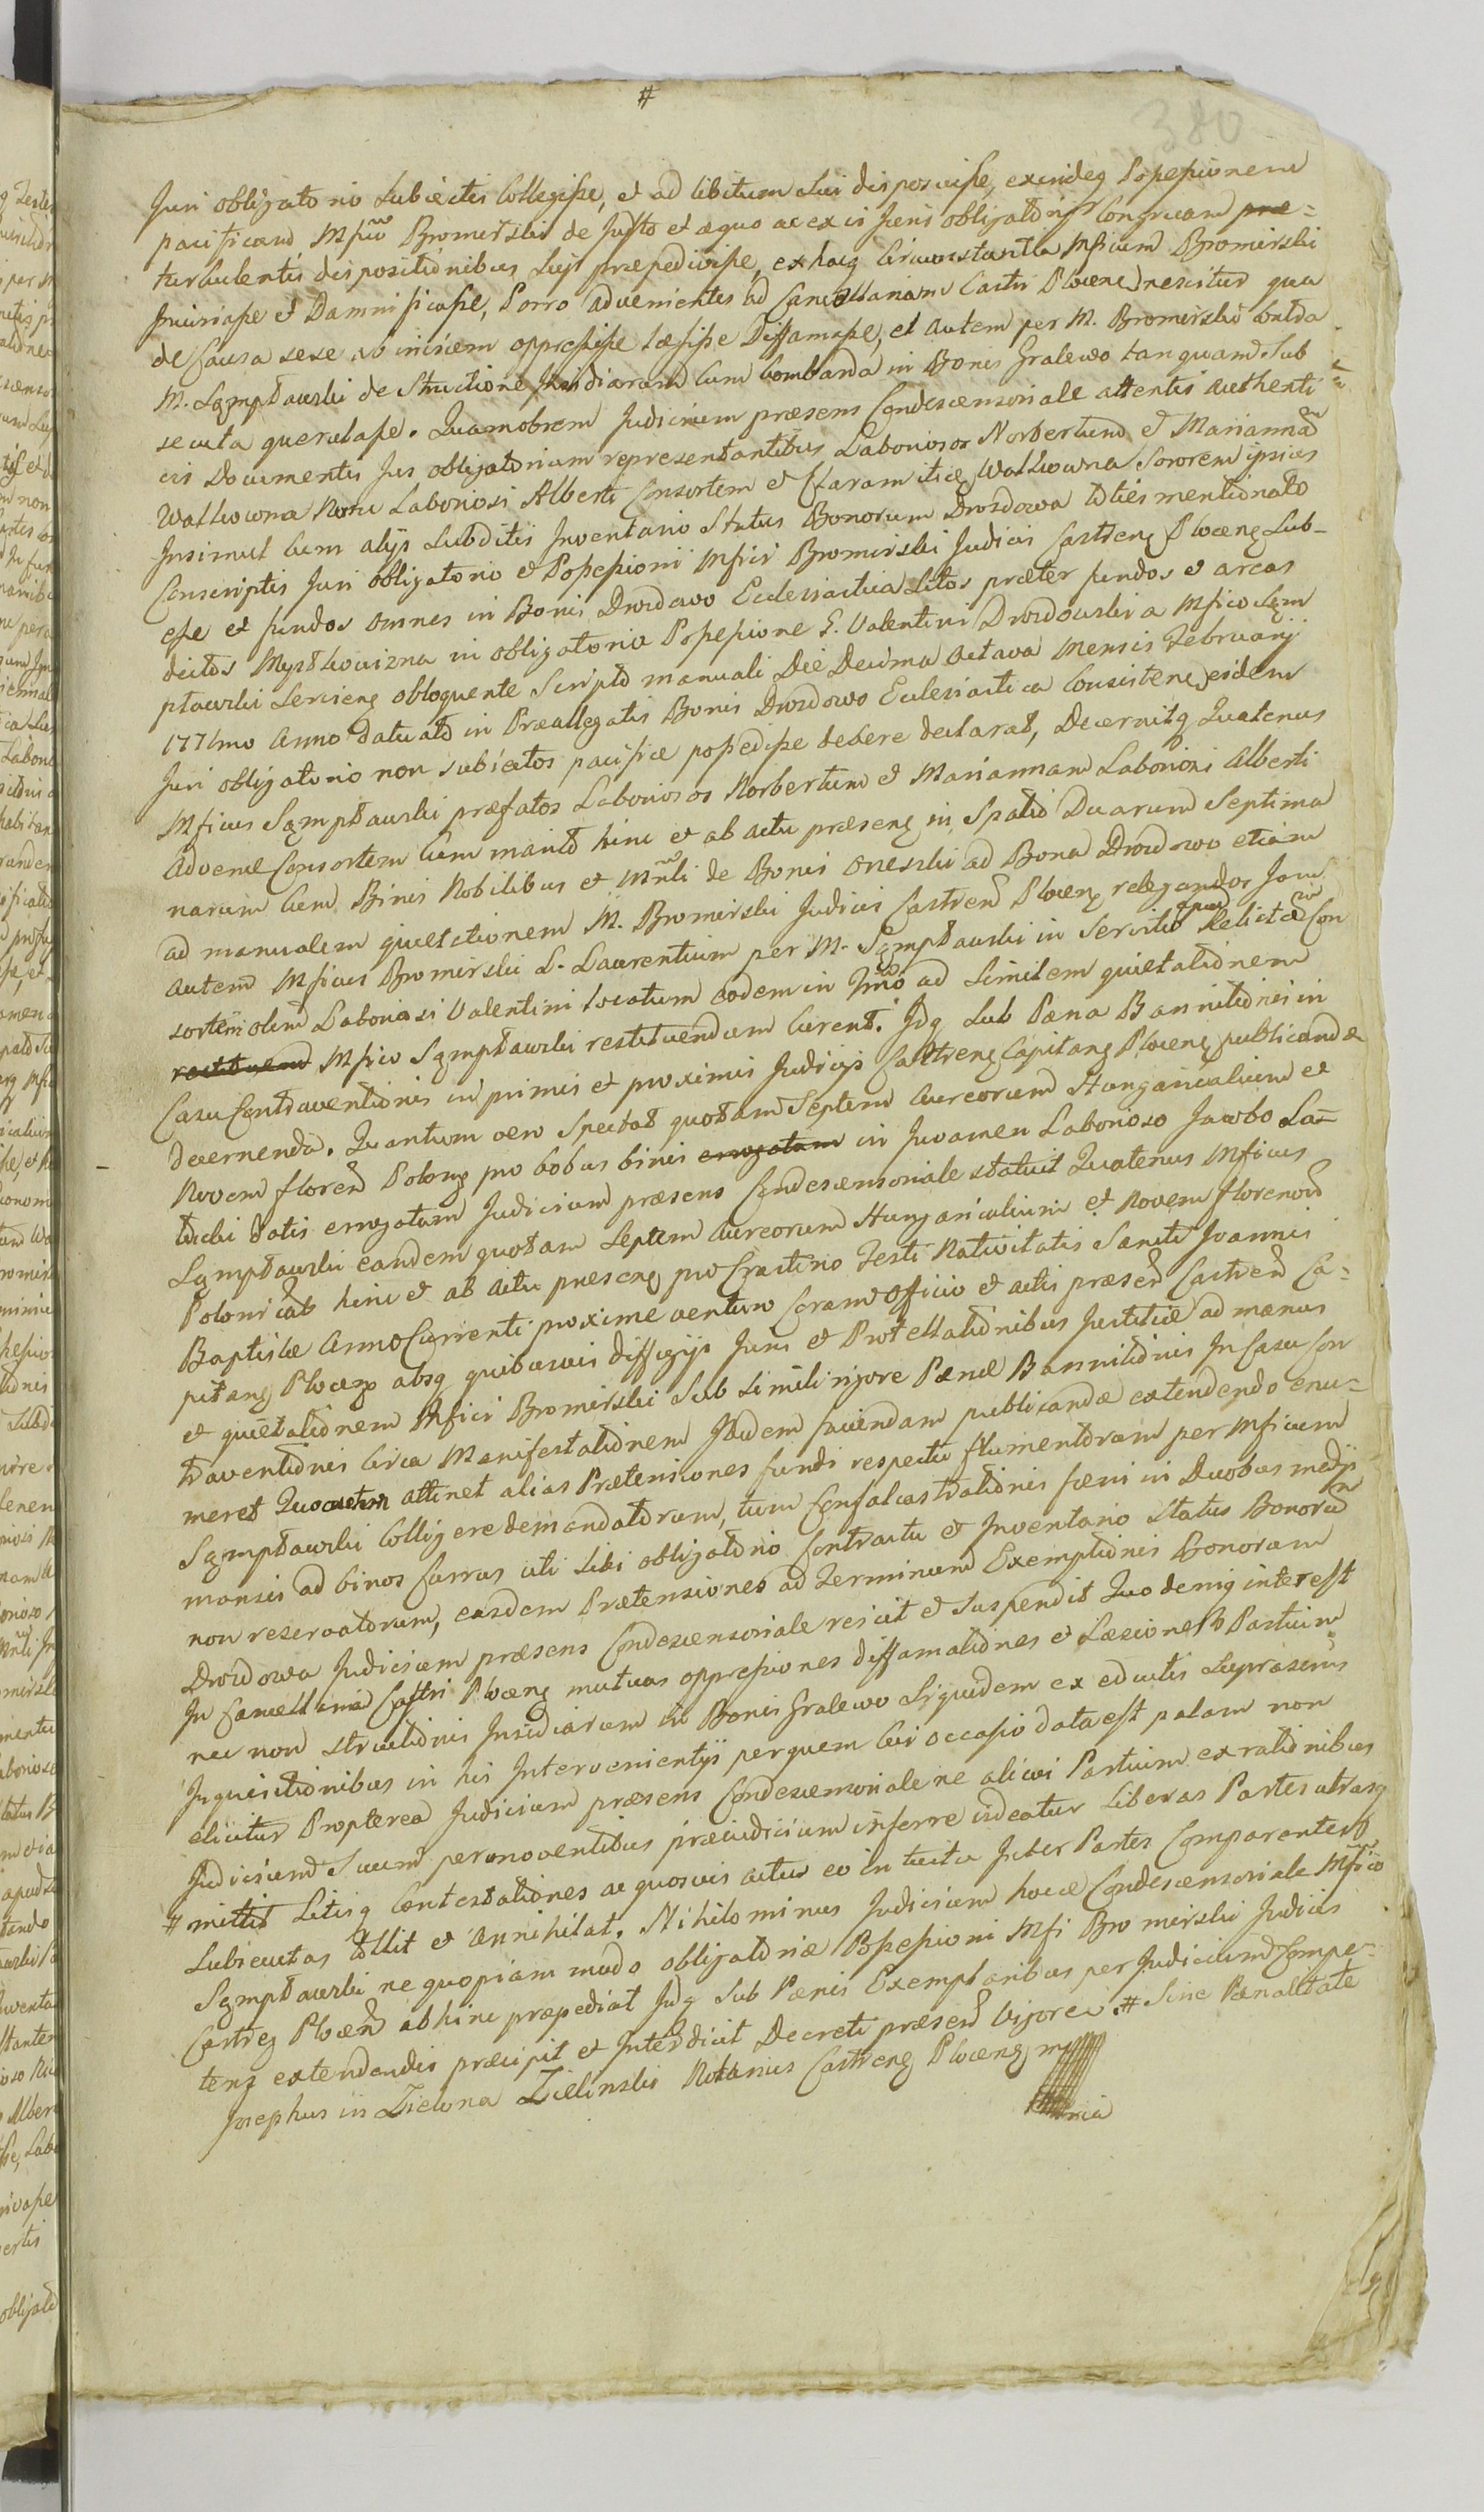 #
380
Juri obligatorio Subiectis Collegisse, et ad libitum Sui disposuisse, exindeq Possessionem
pacificam Mfico Bromirski de Justo et æquo ac ex vi Juris obligatorij Congruam
turbulentis dispositionibus Suis præpedivisse, ex hacq Circumstantia Mficum Bromirski
Iniuriasse et Damnificasse, Porro advenientes ad Cancellariam Castri Plocens nescitur qua
de Causa sese ab invicem oppressisse læsisse Diffamasse, et autem per M. Bromirski contra
M. Sąmptawski de Structione Insidiarum Cum bombarda in Bonis Gralewo tanquam Sub
secuta querulasse. Quamobrem Judicium præsens Condescensoriale attentis authenti
cis Documentis Jus obligatorium representantibus Laboriosos Norbertum et Mariannam
Walkowna Nunc Laboriosi Alberti Consortem et Claram itidę Walkowna Sororem ipsius
Insimul Cum alijs Subditis Inventario Status Bonorum Drozdowa toties mentionato
Conscriptis Juri obligatorio et Possessioni Mfici Bromirski Judicis Castrens Plocens Sub-
esse et fundos omnes in Bonis Drozdowo Ecclesiastica Sitos præter fundos et areas
dictos Mystkowizna in obligatoria Possessione G. Valentini Drozdowski a Mfico Sąm
ptawski Serviens obloquente Scripto manuali Die Decima Octava Mensis Februarij
1771mo Anno datuato in Præallegatis Bonis Drozdowo Ecclesiastica Consistens eidem
Juri obligatorio non subiectos pacifice possedisse debere declarat, Decernitq Quatenus
Mficus Sąmptawski præfatos Laboriosos Norbertum et Mariannam Laboriosi Alberti
Advenæ Consortem Cum marito hinc et ab actu præsens in Spatio Duarum Septima
narum Cum Binis Nobilibus et Mnli de Bonis Orszki ad Bona Drozdowo etiam
ad manualem quietationem M. Bromirski Judicis Castrens Plocens relegandos Jam
autem Mficus Bromirski L. Laurentium per M. Sąmptawski in Servitio apud Relictæ Con
sortem olim Laboriosi Valentini locatum eodem in Tmino ad Similem quietationem
restituend Mfico Sąmptawski restituendum Curent. Idq Sub Pæna Bannitionis in
Casu Contraventionis in primis et proximis Judicijs Castrens Capitans Plocens publicandæ
decernenda. Quantum vero Spectat quotam Septem Aureorum Hungaricalium et
Novem floren Polong pro bobus binis erogatam in Juvamen Laborioso Jacobo La-
tucki datis erogatam Judicium præsens Condescensoriale statuit Quatenus Mficus
Sąmptawski eandem quotam Septem Aureorum Hungaricalium et Novem florenos
Polonicals hinc et ab actu præsens pro Crastino Festi Nativitatis Sancti Joannis
Baptistæ Anno Currenti proxime venturo Coram Officio et actis præsen Castren Ca=
pitang Plocens absq quibusvis diffugijs Juris et Protestationibus Justitiæ ad manus
et quietationem Mfici Bromirski Sub Simili rigore Pænæ Bannitionis In Casu Con
traventionis Circa Manifestationem Ibidem faciendam publicandæ extendendo enu-
meret Quo autem attinet alias Prætensiones fundi respectu frumentorum per Mficum
Sąmptawski Colligere demandatorum, tum Confalcastrationis fæni in Duobus medijs
mansis ad binos Currus uti Sibi obligatorio Contractu et Inventario Status Bonorum
non reservatorum, easdem Prætensiones ad Terminum Exemptionis Bonorum
Drozdowa Judicium præsens Condescensoriale reiicit et Suspendit Quo deniq interest
In Cancellaria Castri Plocens mutuas oppressiones diffamationes et Læsiones Partium
nec non structionis Insidiarum in Bonis Gralewo Siquidem ex eductis Suprascriptis
Inquisitionibus in his Intervenientijs per quem Cui occasio data est palam non
elicitur Propterea Judicium præsens Condescensoriale ne alicui Partium ex rationibus
Judicium Suum permoventibus præiudicium inferre videatur Liberas Partes utrasq
# mittit Litisq Contestationes ac quosvis actus eo in tuitu Inter Partes Comparentes
Subsecutas tollit et annihilat. Nihilominus Judicium hocce Condescensoriale Mfico
Sąmptawski ne quopiam modo obligatoriæ Possessioni Mfi Bromirski Judicis
Castreg Plocen abhinc præpediat Idq Sub Pænis Exemplaribus per Judicium Compe-
teng extendendis præcipit et Interdicit Decreti præsen Vigore. # Sine Pænalitate
Josephus in Zielona Zielinski Notarius Castreng Ploceng mp